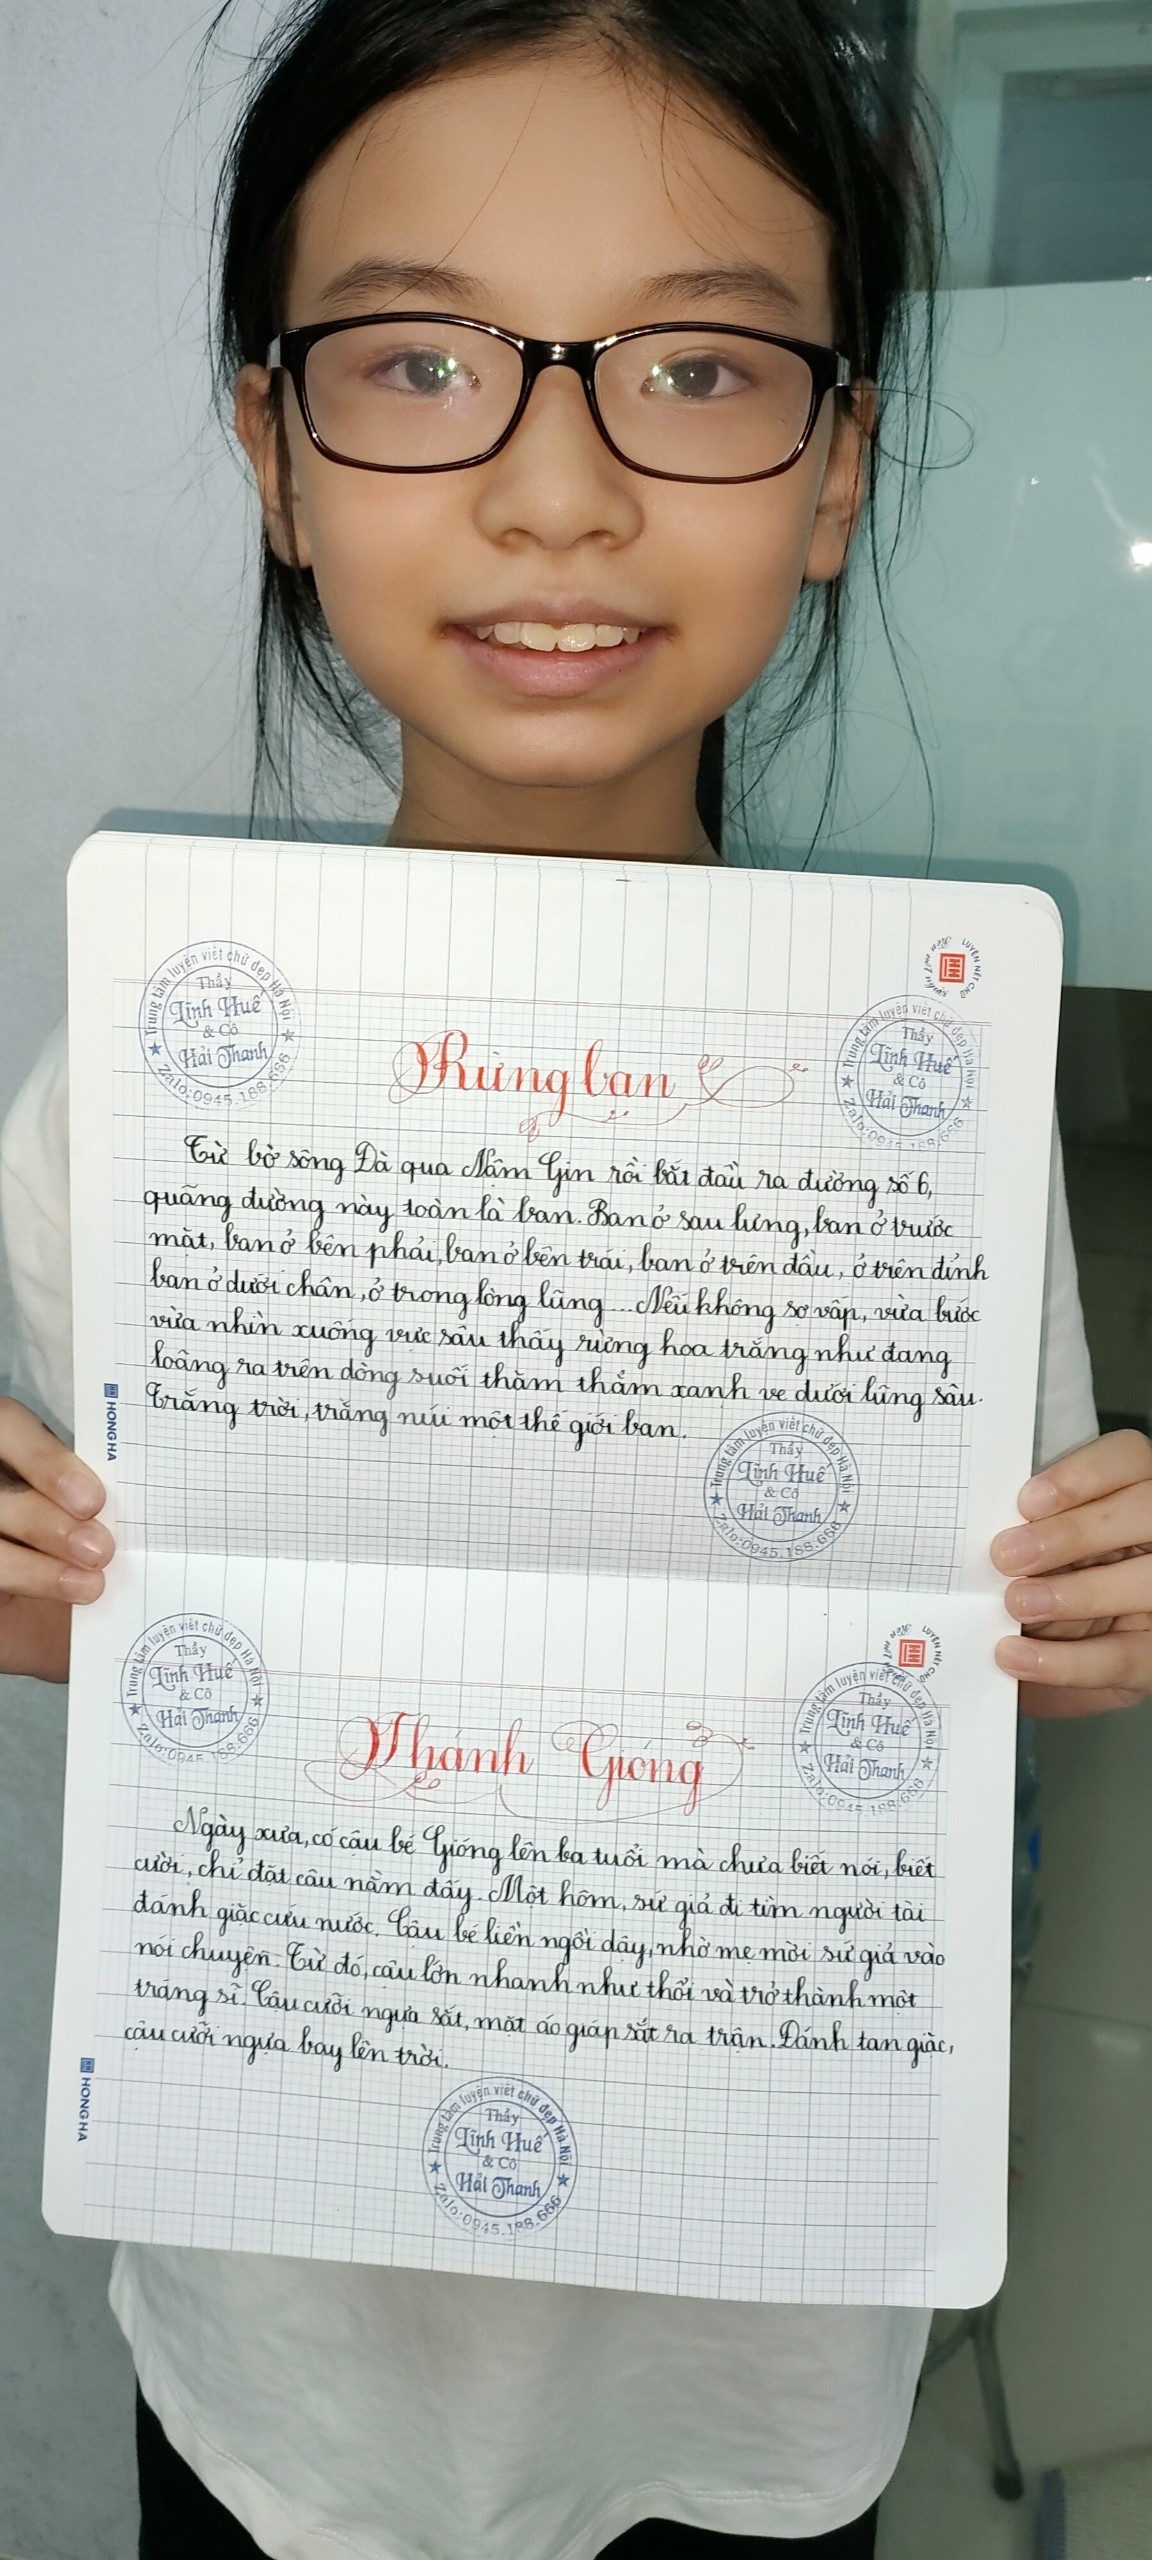 Trung tâm luyện viết chữ đẹp Hà Nội
Thầy
Lĩnh Huế
& Cô
Hải Thanh
Zalo:0945.188.666
LUYỆN NÉT CHỮ
Rèn nết người
Trung tâm luyện viết chữ đẹp Hà Nội
Thầy
Lĩnh Huế
& Cô
Hải Thanh
Zalo:0945.188.666
Rừng ban
Từ bờ sông Đà qua Nậm Gin rồi bắt đầu ra đường số 6,
quãng đường này toàn là ban. Ban ở sau lưng, ban ở trước
mặt, ban ở bên phải, ban ở bên trái, ban ở trên đầu, ở trên đỉnh
ban ở dưới chân, ở trong lòng lũng ... Nếu không sợ vấp, vừa bước
vừa nhìn xuống vực sâu thấy rừng hoa trắng như đang
loãng ra trên dòng suối thăm thẳm xanh ve dưới lũng sâu.
Trắng trời, trắng núi một thế giới ban.
HONG HA
Trung tâm luyện viết chữ đẹp Hà Nội
Thầy
Lĩnh Huế
& Cô
Hải Thanh
Zalo:0945.188.666
Trung tâm luyện viết chữ đẹp Hà Nội
Thầy
Lĩnh Huế
& Cô
Hải Thanh
Zalo:0945.188.666
LUYỆN NÉT CHỮ
Rèn nết người
Trung tâm luyện viết chữ đẹp Hà Nội
Thầy
Lĩnh Huế
& Cô
Hải Thanh
Zalo:0945.188.666
Thánh Gióng
Ngày xưa, có cậu bé Gióng lên ba tuổi mà chưa biết nói, biết
cười, chỉ đặt câu nằm đấy. Một hôm, sứ giả đi tìm người tài
đánh giặc cứu nước. Cậu bé liền ngồi dậy, nhờ mẹ mời sứ giả vào
nói chuyện. Từ đó, cậu lớn nhanh như thổi và trở thành một
tráng sĩ. Cậu cưỡi ngựa sắt, mặt áo giáp sắt ra trận. Đánh tan giặc,
cậu cưỡi ngựa bay lên trời.
HONG HA
Trung tâm luyện viết chữ đẹp Hà Nội
Thầy
Lĩnh Huế
& Cô
Hải Thanh
Zalo:0945.188.666